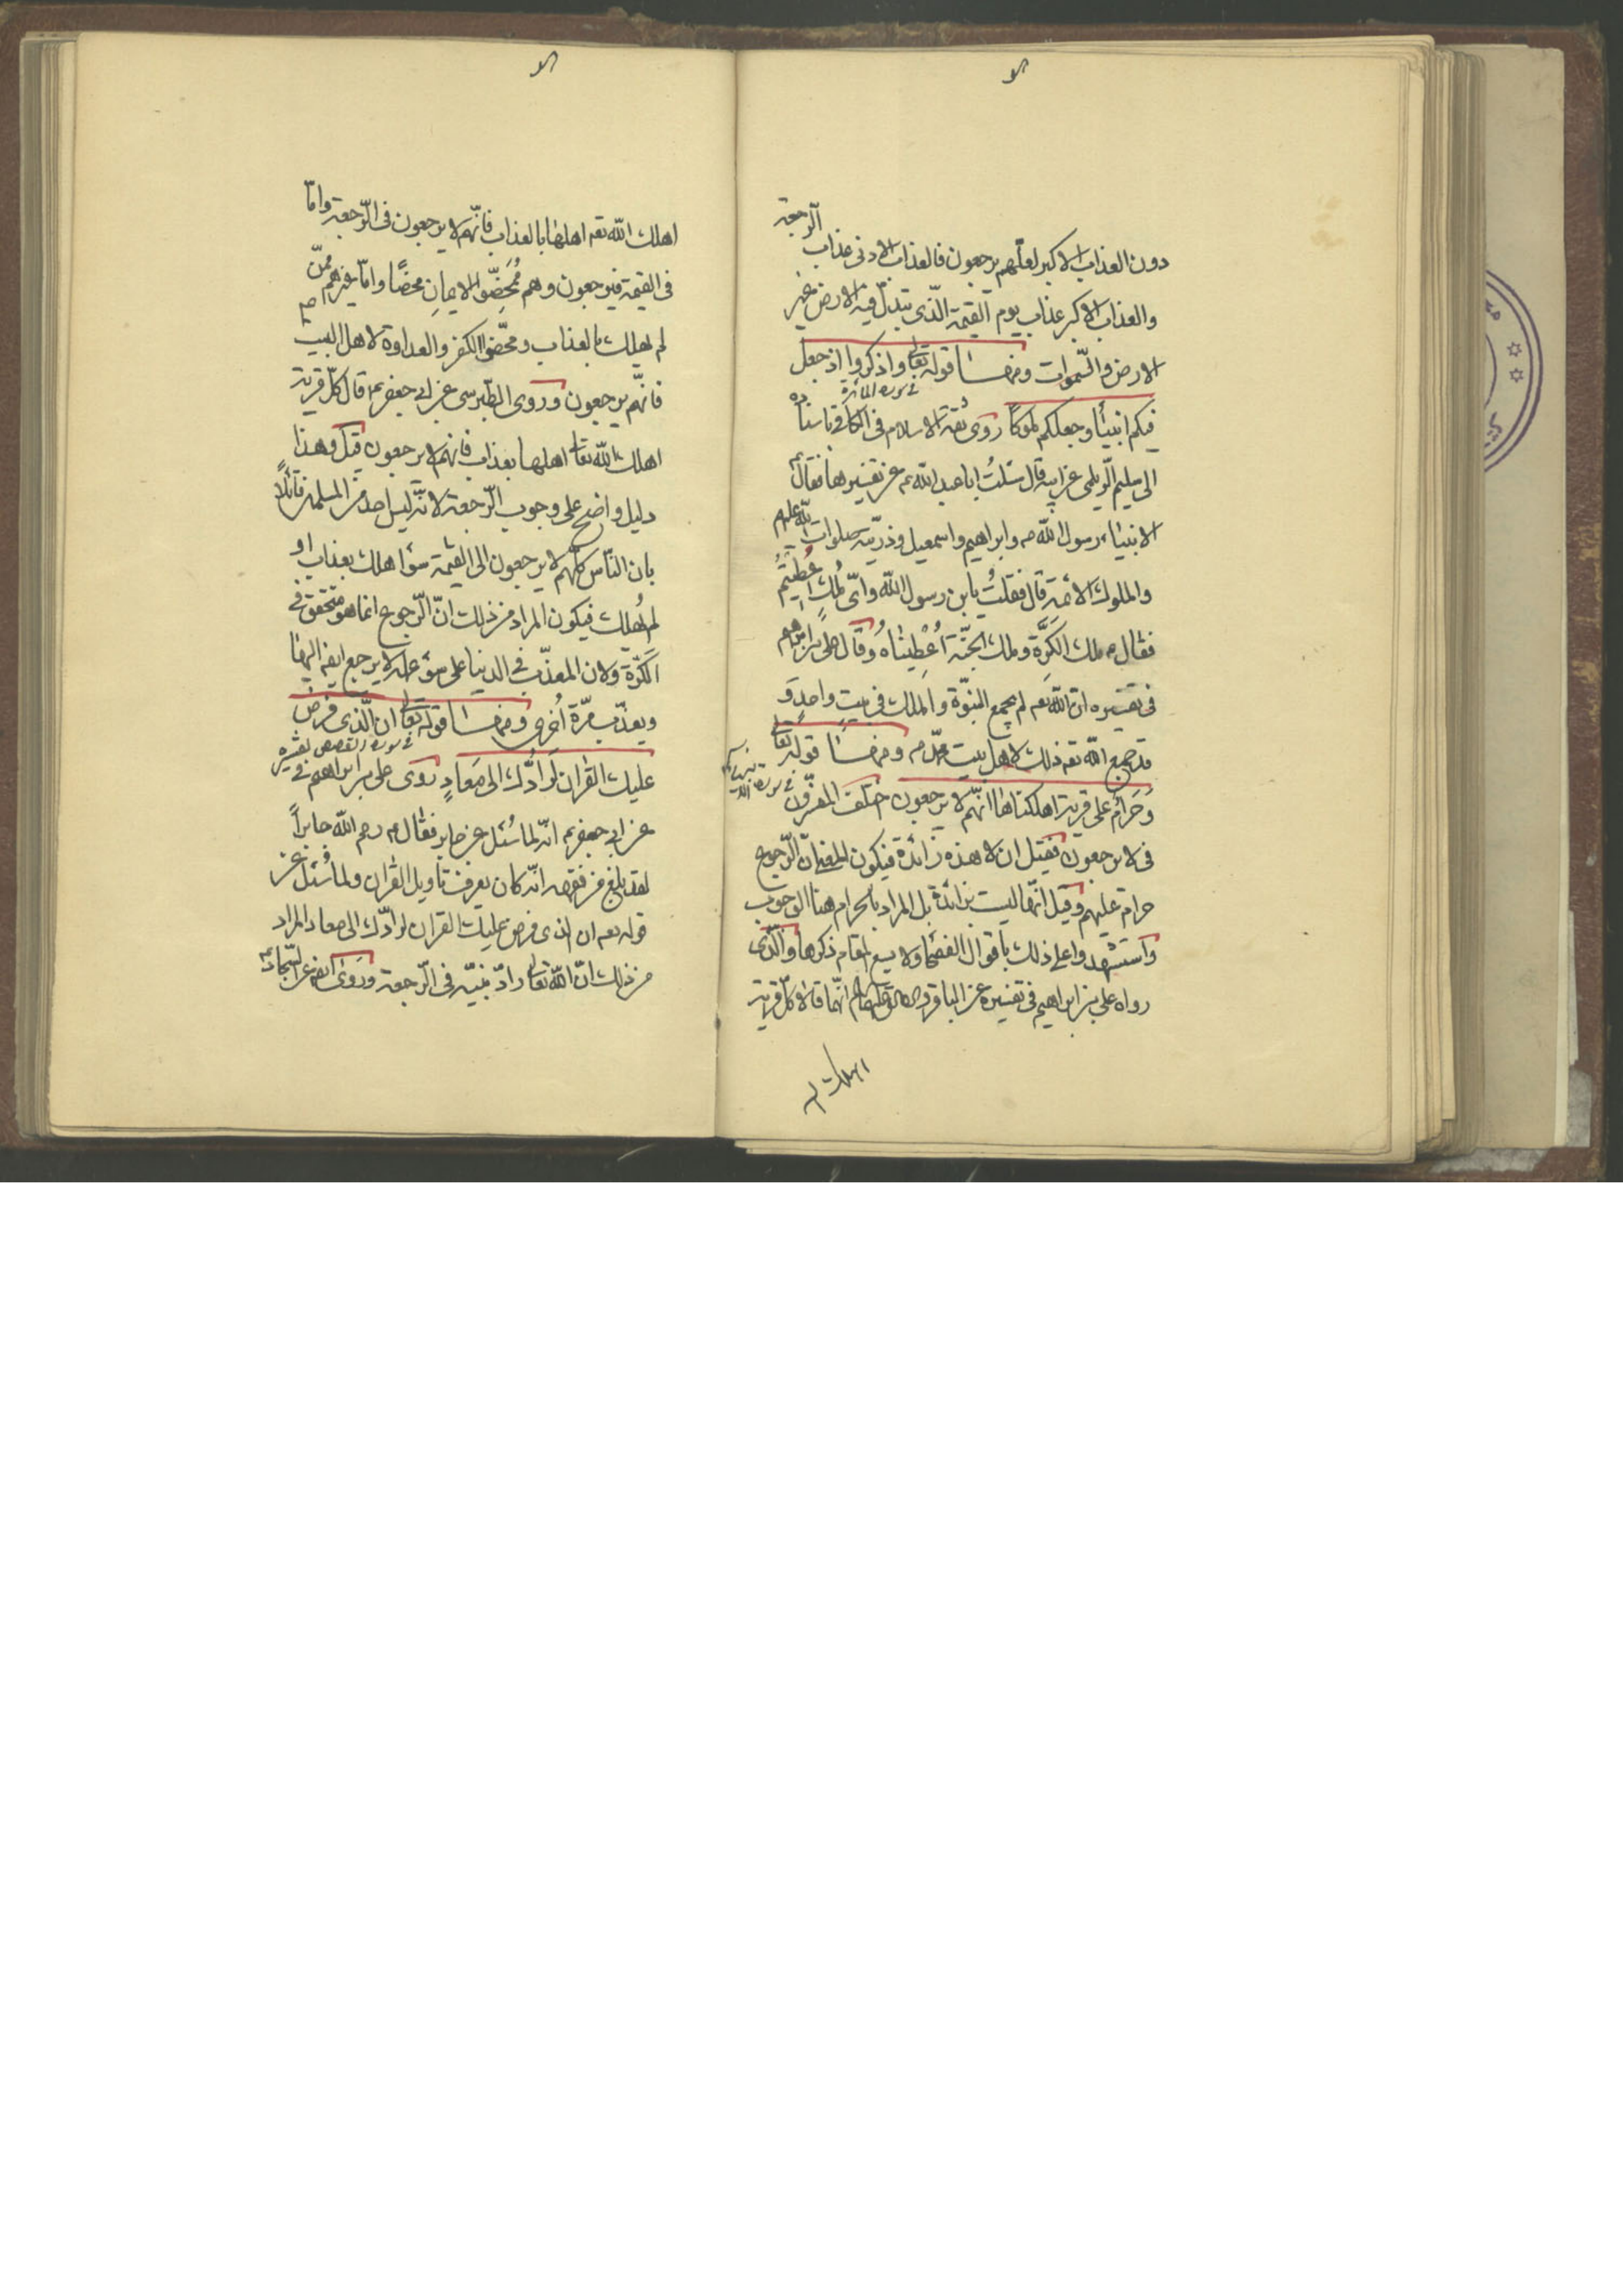 دون العذاب الاكبر لعلّهم يرجعون فالعذاب الادنى عذاب الرّجعة
والعذاب الاكبر عذاب يوم القيمة الّذى تبدّل فيه الارض غير
الارض والسّموات ومنها قوله تعالى واذكروا اذ جعل
فى سورة المائدة
فيكم انبيٰاء وجعلكم ملوكًا روى ثقة الاسلام فى الكافى باسناده
الى سليم الدّيلمى عن ابيه قال سئلتُ اباعبد الله ع عن تفسيرها فقال
الانبيٰاء رسول الله ص وابراهيم واسمعيل وذريّته صلوات الله عليهم
والملوك الائمّة قال فقلتُ يابن رسول الله واىّ مُلك اُعطيتُم
فقال ع ملك الكَرَّة وملك الجنّة اُعْطِينٰاهُ وقال على بن ابراهيم
فى تفسيره انّ الله تعم لم يجمع النبوّة والملك فى بيت واحدٍ و
قد جمع الله تعه ذلك لاهل بيت محمّد ص ومنها قوله تعالى
فى سورة الانبياء
وَحَرٰامٌ على قرية اهلكناها انّهم لا يرجعون اختلف المفسّرون
فى لا يرجعون فقيل ان لا هذه زٰائدة فيكون المعنى انّ الرّجوع
حرام عليهم وقيل انّها ليست بزائدة بل المراد بالحرام هنا الوجوب
واستشهدوا على ذلك باقوال الفصحا ولا يسع المقام ذكرها والّذى
رواه على بن ابراهيم فى تفسيره عن الباقر والصادق عليهما السلام انّهما قالا كلّ قرية
اهلك الله
اهلك الله تعه اهلهٰا بالعذاب فانّهم لا يرجعون فى الرّجعة وامّا
فى القيمة فيرجعون وهم مُمَحِّضوا الايمانِ محضًا وامّا غيرهم ممّن
لم يهلك بالعذاب ومحّضوا الكفر والعداوة لاهل البيت
فانّهم يرجعون وروى الطّبرسى عن ابى جعفر ع قال كلّ قرية
اهلك الله تعا اهلها بعذاب فانهم لا يرجعون قيل وهذا
دليل واضح على وجوب الرّجعة لانّه ليس احد من المسلمين قائلاً
بان النّاس كلّهم لا يرجعون الى القيٰمة سوٰا اهلك بعذاب او
لم يُهلك فيكون المراد من ذلك انّ الرّجوع انما هو متحقق فى
الكَرّة ولان المعذّب فى الدنيا على سوٓء عمله لا يرجع ايضا اليهٰا
ويعذّب مرّة اُخرى ومنها قوله تعالى ان الّذى فرض
فى سورة القصص
عليك القرٰان لَرٰادُّك الى مَعٰادٍ روى على بن ابراهيم فى تفسيره
عن ابى جعفر ع انّه لما سُئل عن جابر فقال ع رحم الله جابراً
لقد بلغ من فقهه انّه كان يعرف تأويل القرٰان ولما سُئل عن
قوله تعه ان الذى فرض عليك القرٰان لرادّك الى معاد المراد
من ذلك انّ الله تعالى رادّ نبيّه فى الرّجعة وروى ايضا عن السّجاد ع